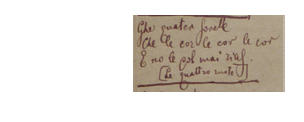 Ghe quater sorell
Che le cor le cor le cor
E no le pol mai rivà.
(Le quattro ruote)